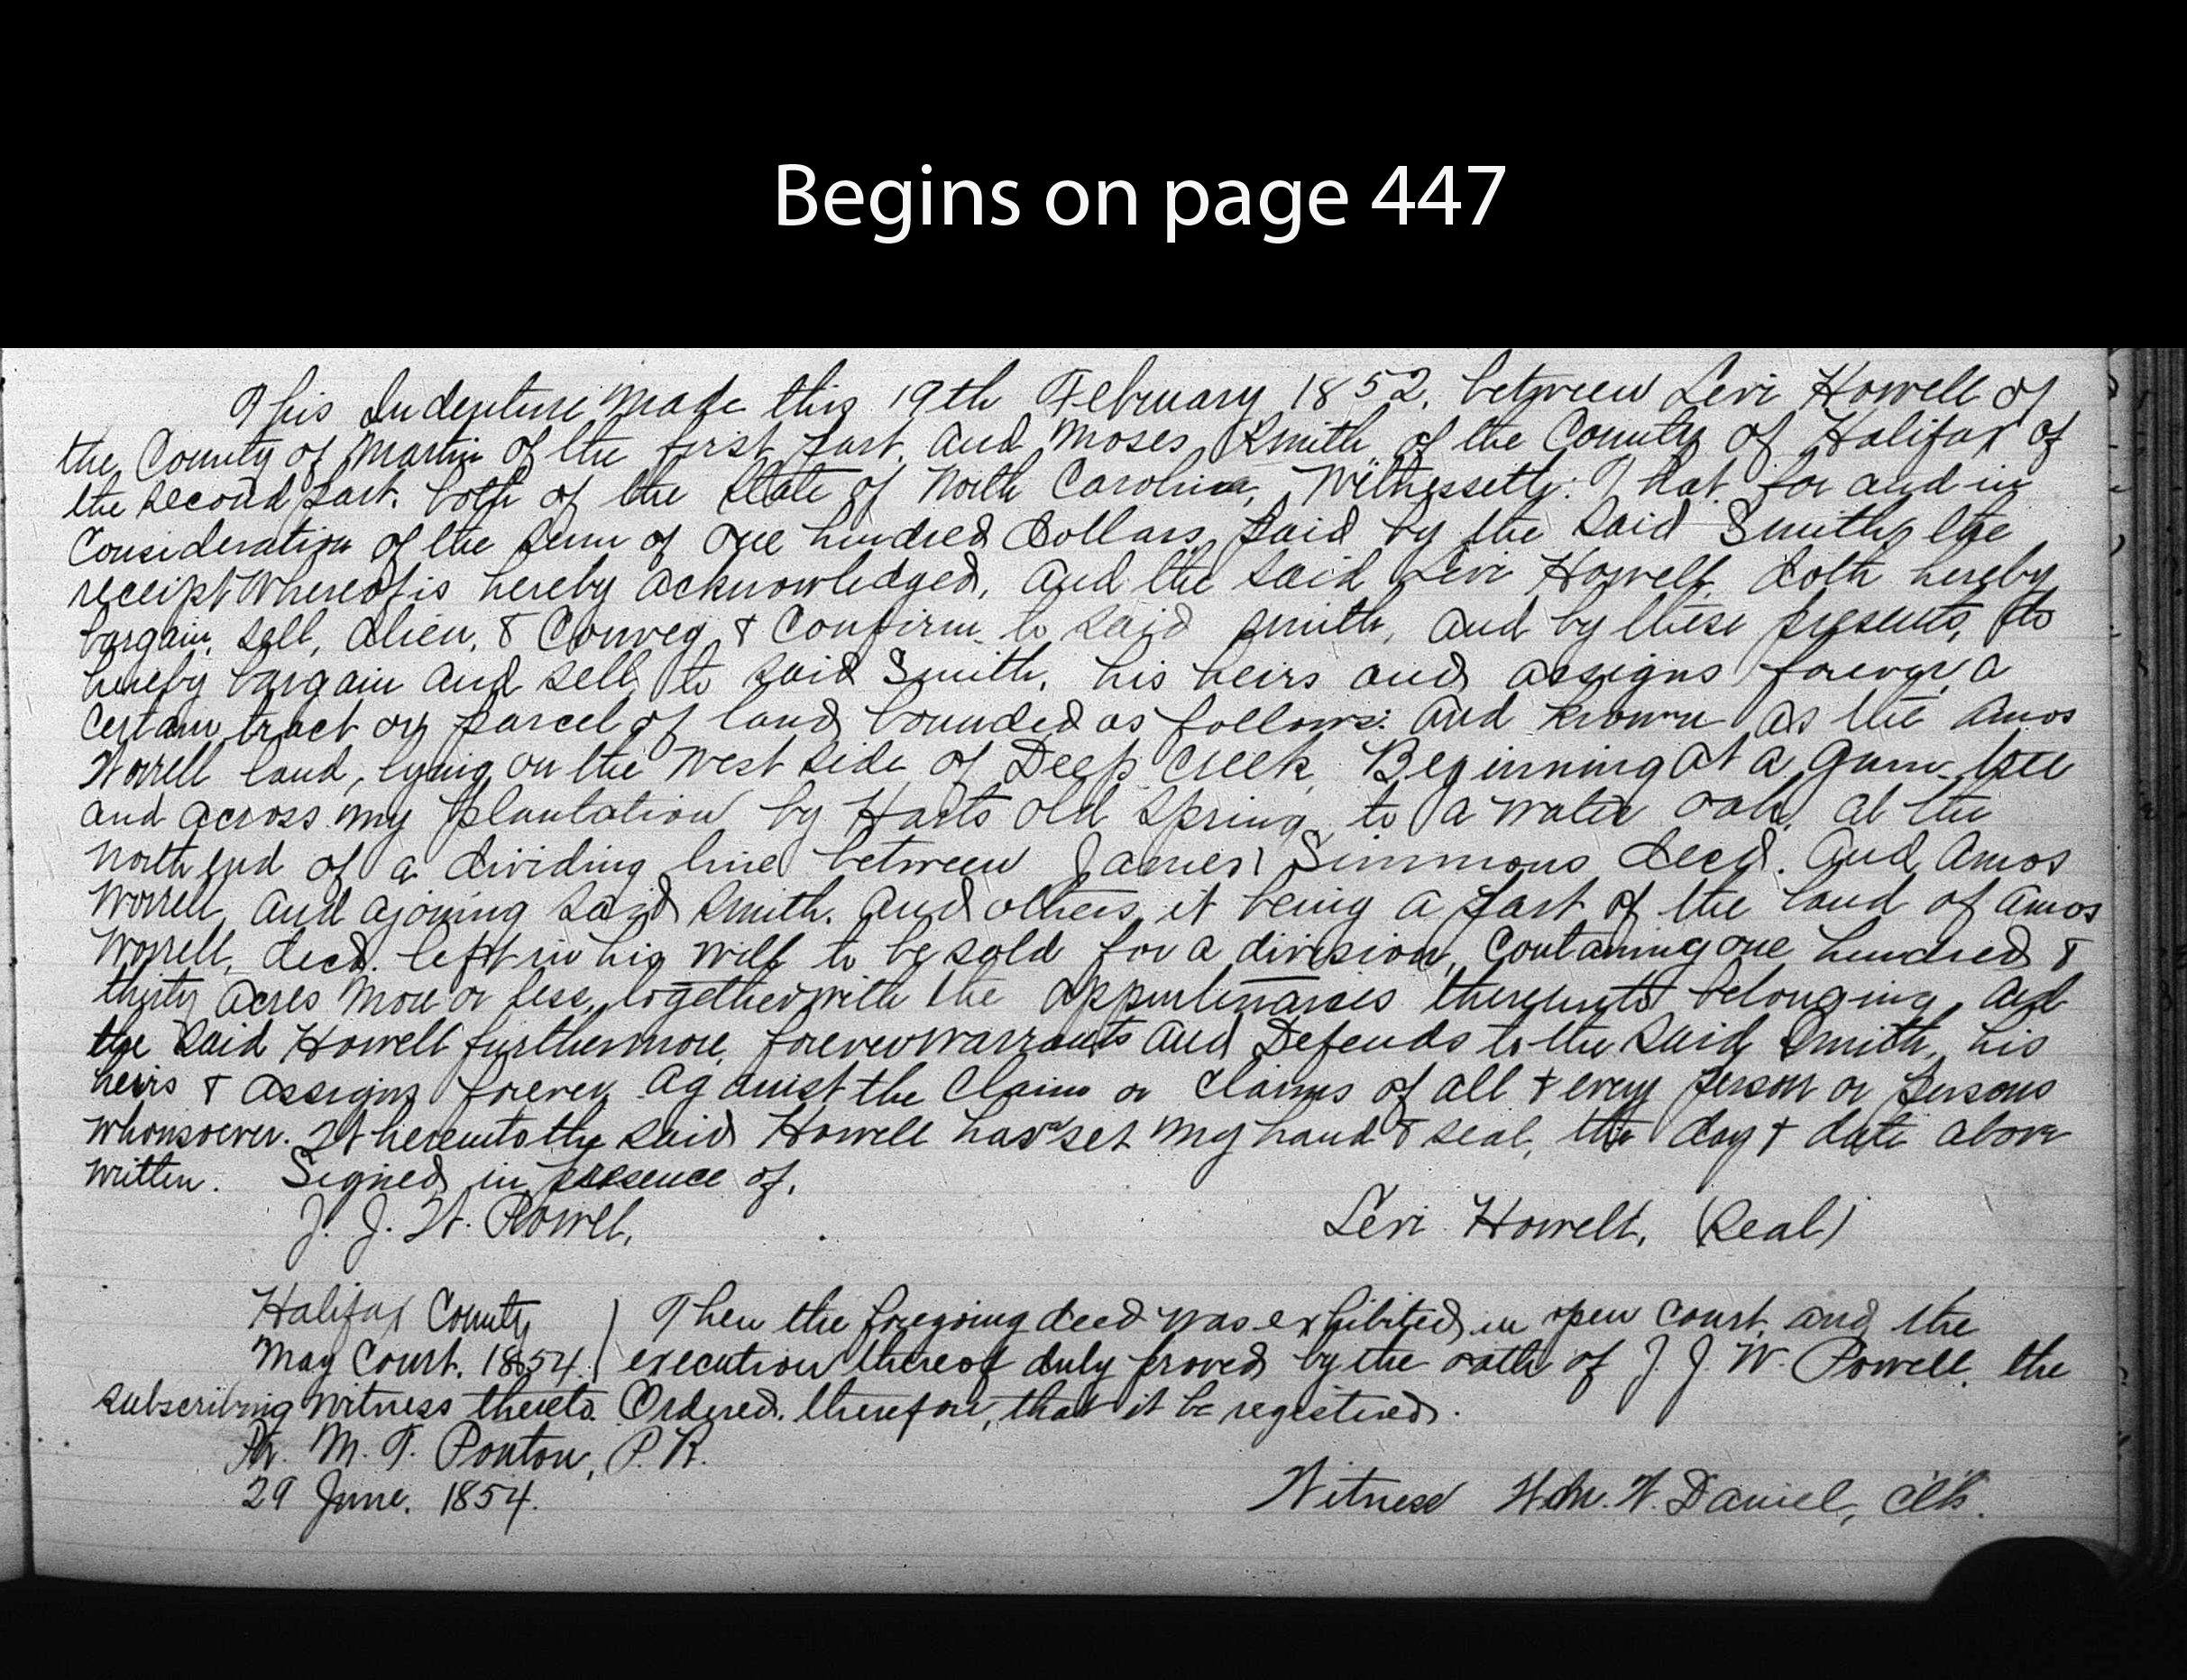 Begins on page 447
This Indenture made this 19th February 1852, between Levi Howell of
the County of Martin of the first part, and Moses Smith of the County of Halifax of
the second part, both of the State of North Carolina, Witnesseth: That for and in
Consideration of the sum of one hundred dollars, paid by the said Smith, the
receipt whereof is hereby acknowledged, and the said Levi Howell, doth hereby
bargain, sell, alien, & Convey & Confirm to said Smith, and by these presents, do
hereby bargain and sell to said Smith, his heirs and assigns forever, a
certain tract or parcel of land bounded as follows: and known as the Amos
Worrell land, lying on the West side of Deep Creek, Beginning at a gum tree
and across my plantation by Harts old Spring, to a water oak, at the
north end of a dividing line between James Simmons decd. and Amos
Worrell, and ajoining said Smith. and others, it being a part of the land of Amos
Worrell, decd. left in his will to be sold for a division, Containing one hundred &
thirty acres more or less, together with the appurtenances thereunto belonging, and
the said Howell furthermore, forever warrants and Defends to the said Smith, his
heirs & assigns forever against the claim or claims of all & every person or persons
whomsoever. It hereunto the said Howell has set my hand & seal, the day & date above
written. Signed in presence of,
J. J. W. Powel, Levi Howell, (Seal)
Halifax County ) Then the foregoing deed was exhibited in open court, and the
May Court. 1854. ) execution thereof duly proved by the oath of J. J. W. Powell, the
subscribing witness thereto. Ordered, therefore, that it be registered.
Pr. M. T. Ponton, P. R.
29 June. 1854. Witness Wm. W. Daniel, Clk.